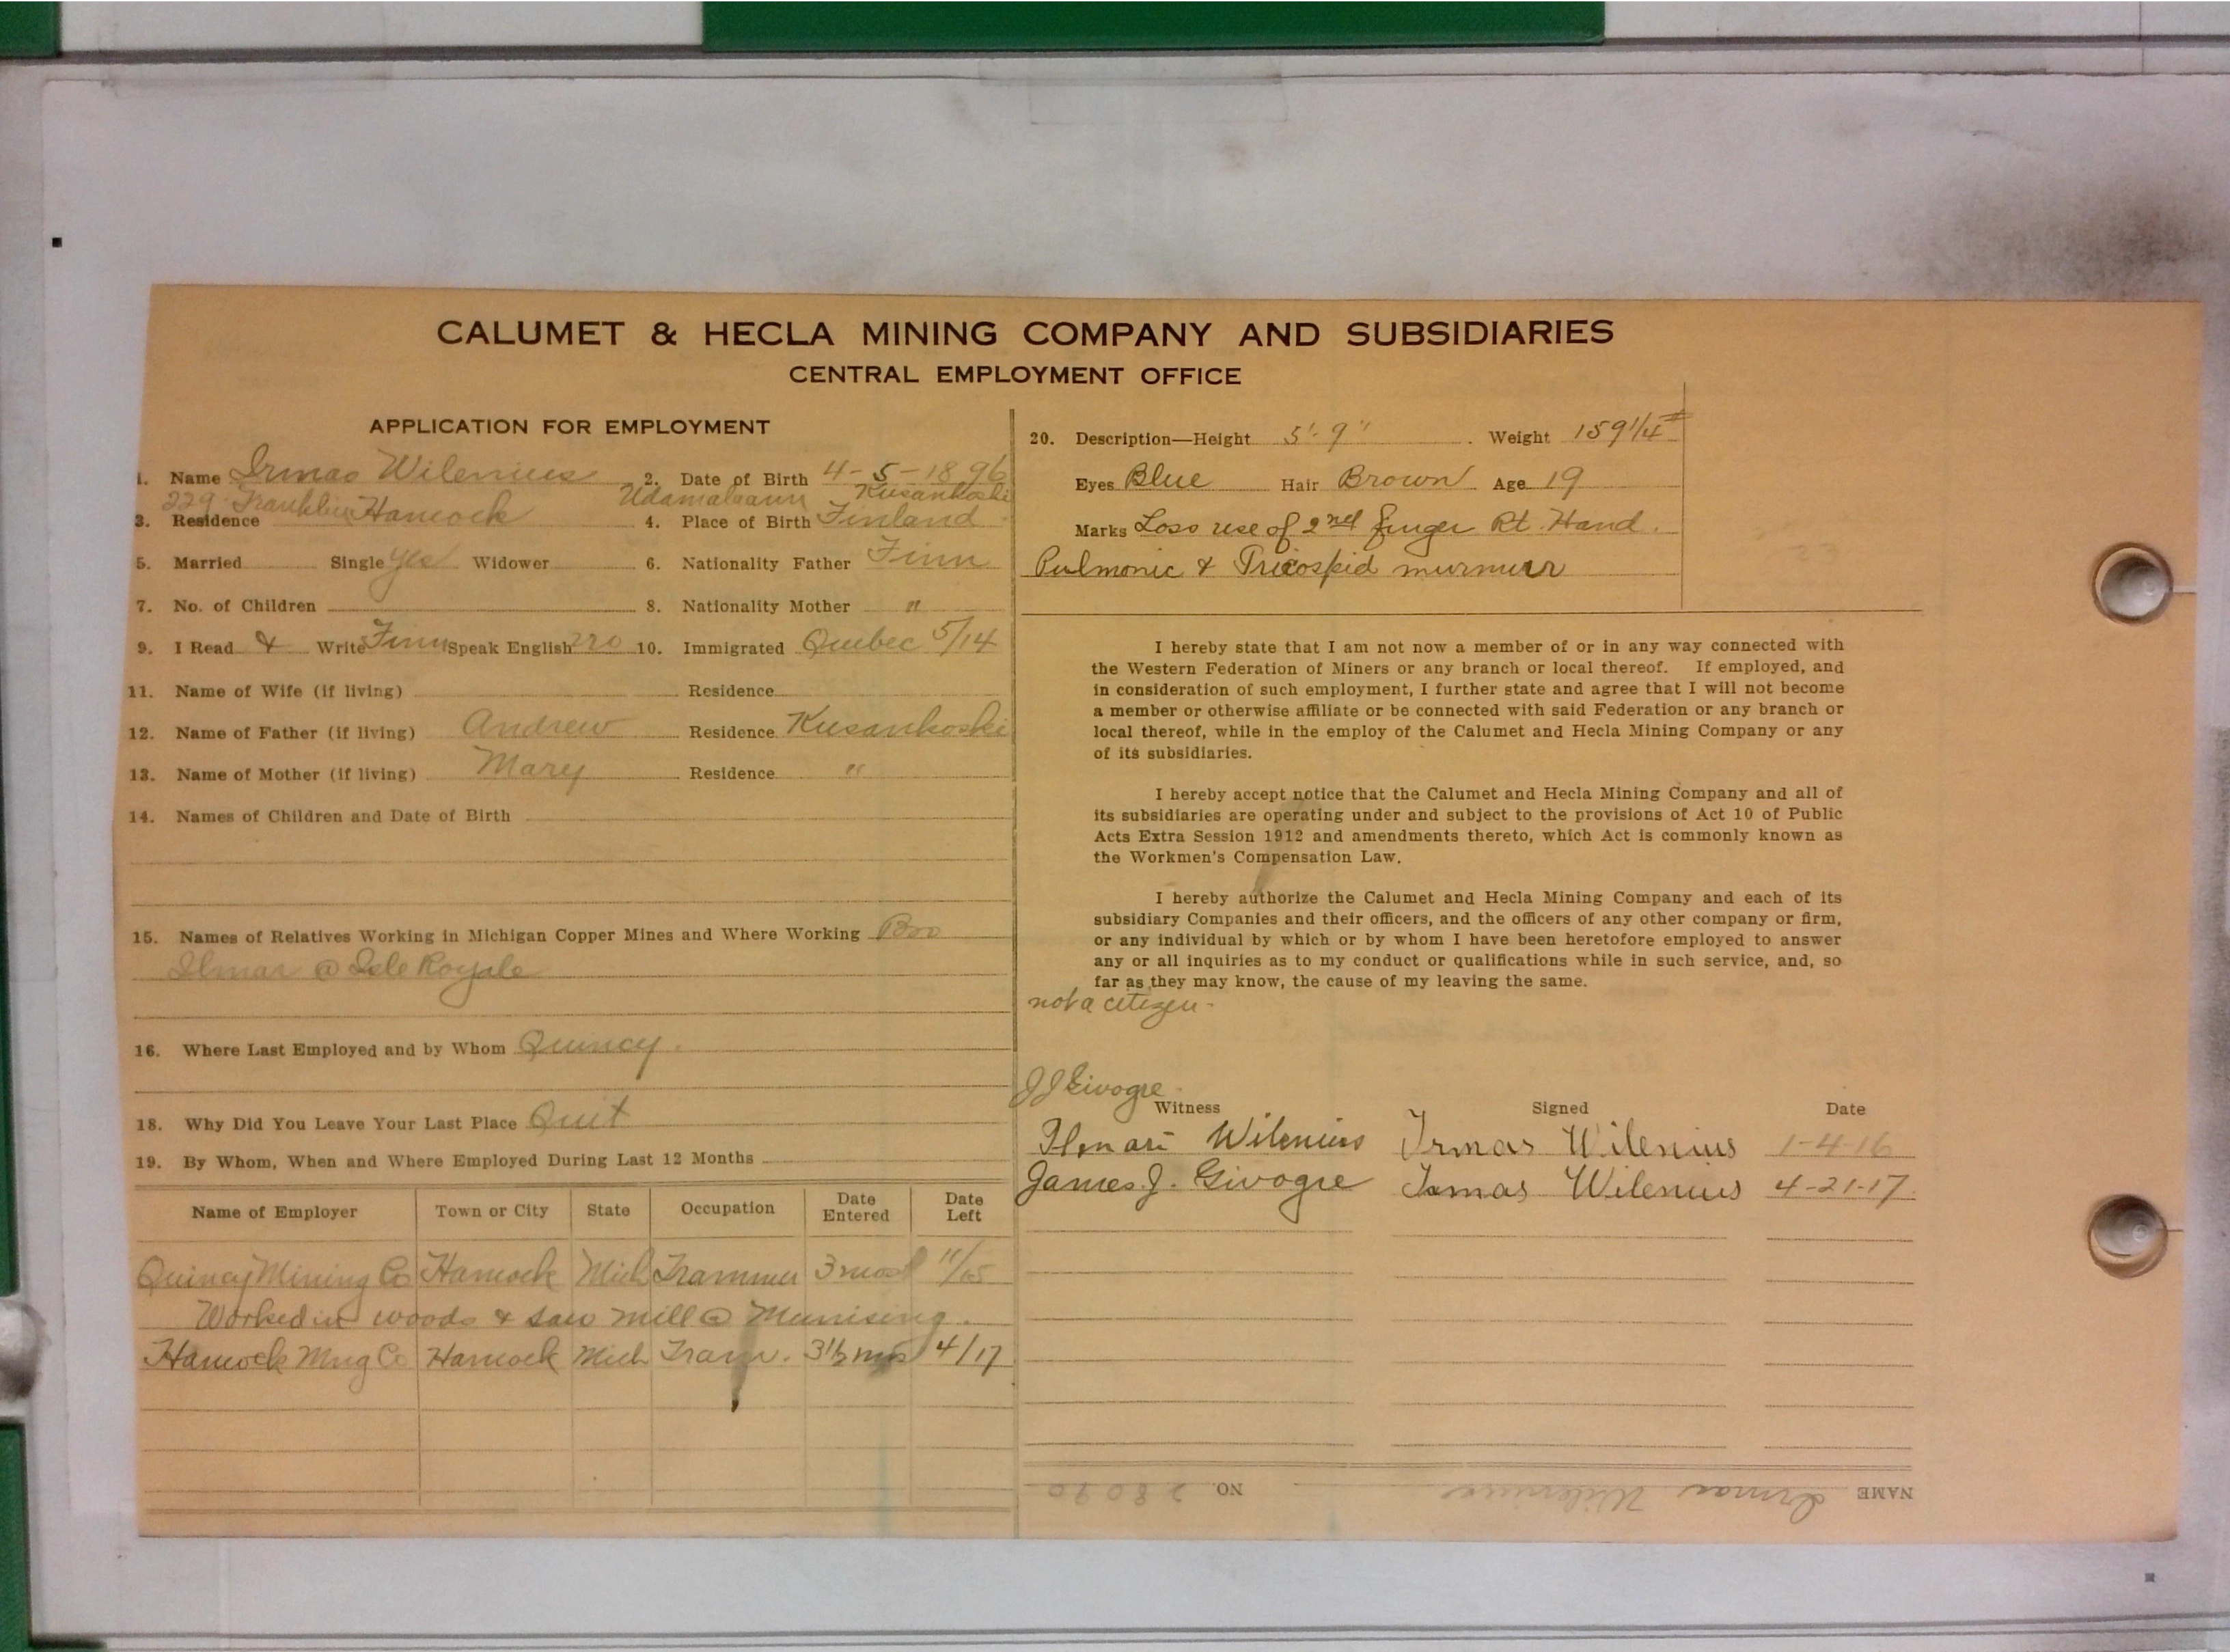 CALUMET & HECLA MINING COMPANY AND SUBSIDIARIES
CENTRAL EMPLOYMENT OFFICE
APPLICATION FOR EMPLOYMENT
1. Name Irmas Wilenius 2. Date of Birth 4-5-1896
229 Franklin Kusankoski
3. Residence Hancock 4. Place of Birth Finland
5. Married Single yes Widower 6. Nationality Father Finn
7. No. of Children 8. Nationality Mother "
9. I Read & Write Finn Speak English no 10. Immigrated Quebec 5/14
11. Name of Wife (if living) Residence
12. Name of Father (if living) Andrew Residence Kusankoski
13. Name of Mother (if living) Mary Residence "
14. Names of Children and Date of Birth
15. Names of Relatives Working in Michigan Copper Mines and Where Working Bro
Ilmar @ Isle Royale
16. Where Last Employed and by Whom Quincy.
18. Why Did You Leave Your Last Place Quit
19. By Whom, When and Where Employed During Last 12 Months
Name of Employer Town or City State Occupation Date Entered Date Left
Quincy Mining Co Hancock Mich Trammer 3 mos 11/15
Worked in woods & saw mill @ Munising.
Hancock Mng Co Hancock Mich Tram. 3 1/2 mos 4/17
20. Description—Height 5'-9" Weight 159 1/4 #
Eyes Blue Hair Brown Age 19
Marks Loss use of 2nd finger Rt. Hand.
Pulmonic & Tricospid murmur
I hereby state that I am not now a member of or in any way connected with
the Western Federation of Miners or any branch or local thereof. If employed, and
in consideration of such employment, I further state and agree that I will not become
a member or otherwise affiliate or be connected with said Federation or any branch or
local thereof, while in the employ of the Calumet and Hecla Mining Company or any
of its subsidiaries.
I hereby accept notice that the Calumet and Hecla Mining Company and all of
its subsidiaries are operating under and subject to the provisions of Act 10 of Public
Acts Extra Session 1912 and amendments thereto, which Act is commonly known as
the Workmen's Compensation Law.
I hereby authorize the Calumet and Hecla Mining Company and each of its
subsidiary Companies and their officers, and the officers of any other company or firm,
or any individual by which or by whom I have been heretofore employed to answer
any or all inquiries as to my conduct or qualifications while in such service, and, so
far as they may know, the cause of my leaving the same.
not a citizen -
JJ Givogre
Witness Signed Date
Ilmari Wilenius Irmas Wilenius 1-4-16
James J. Givogre Irmas Wilenius 4-21-17.
NAME Irmas Wilenius NO. 28090